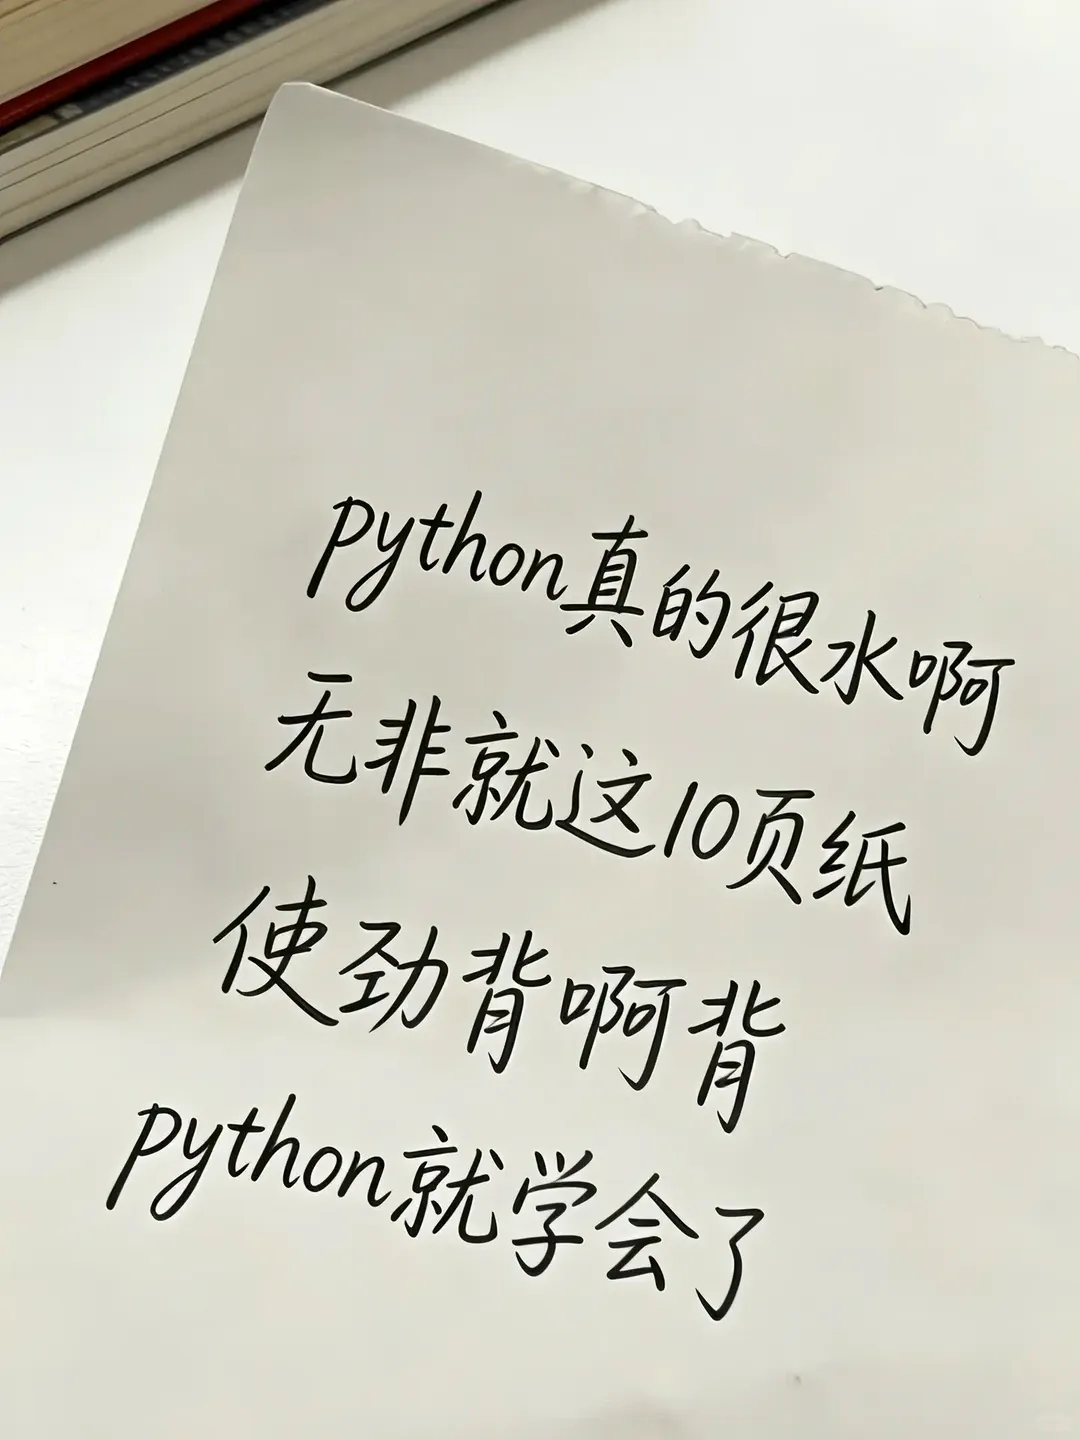 python真的很水啊
无非就这10页纸
使劲背啊背
python就学会了